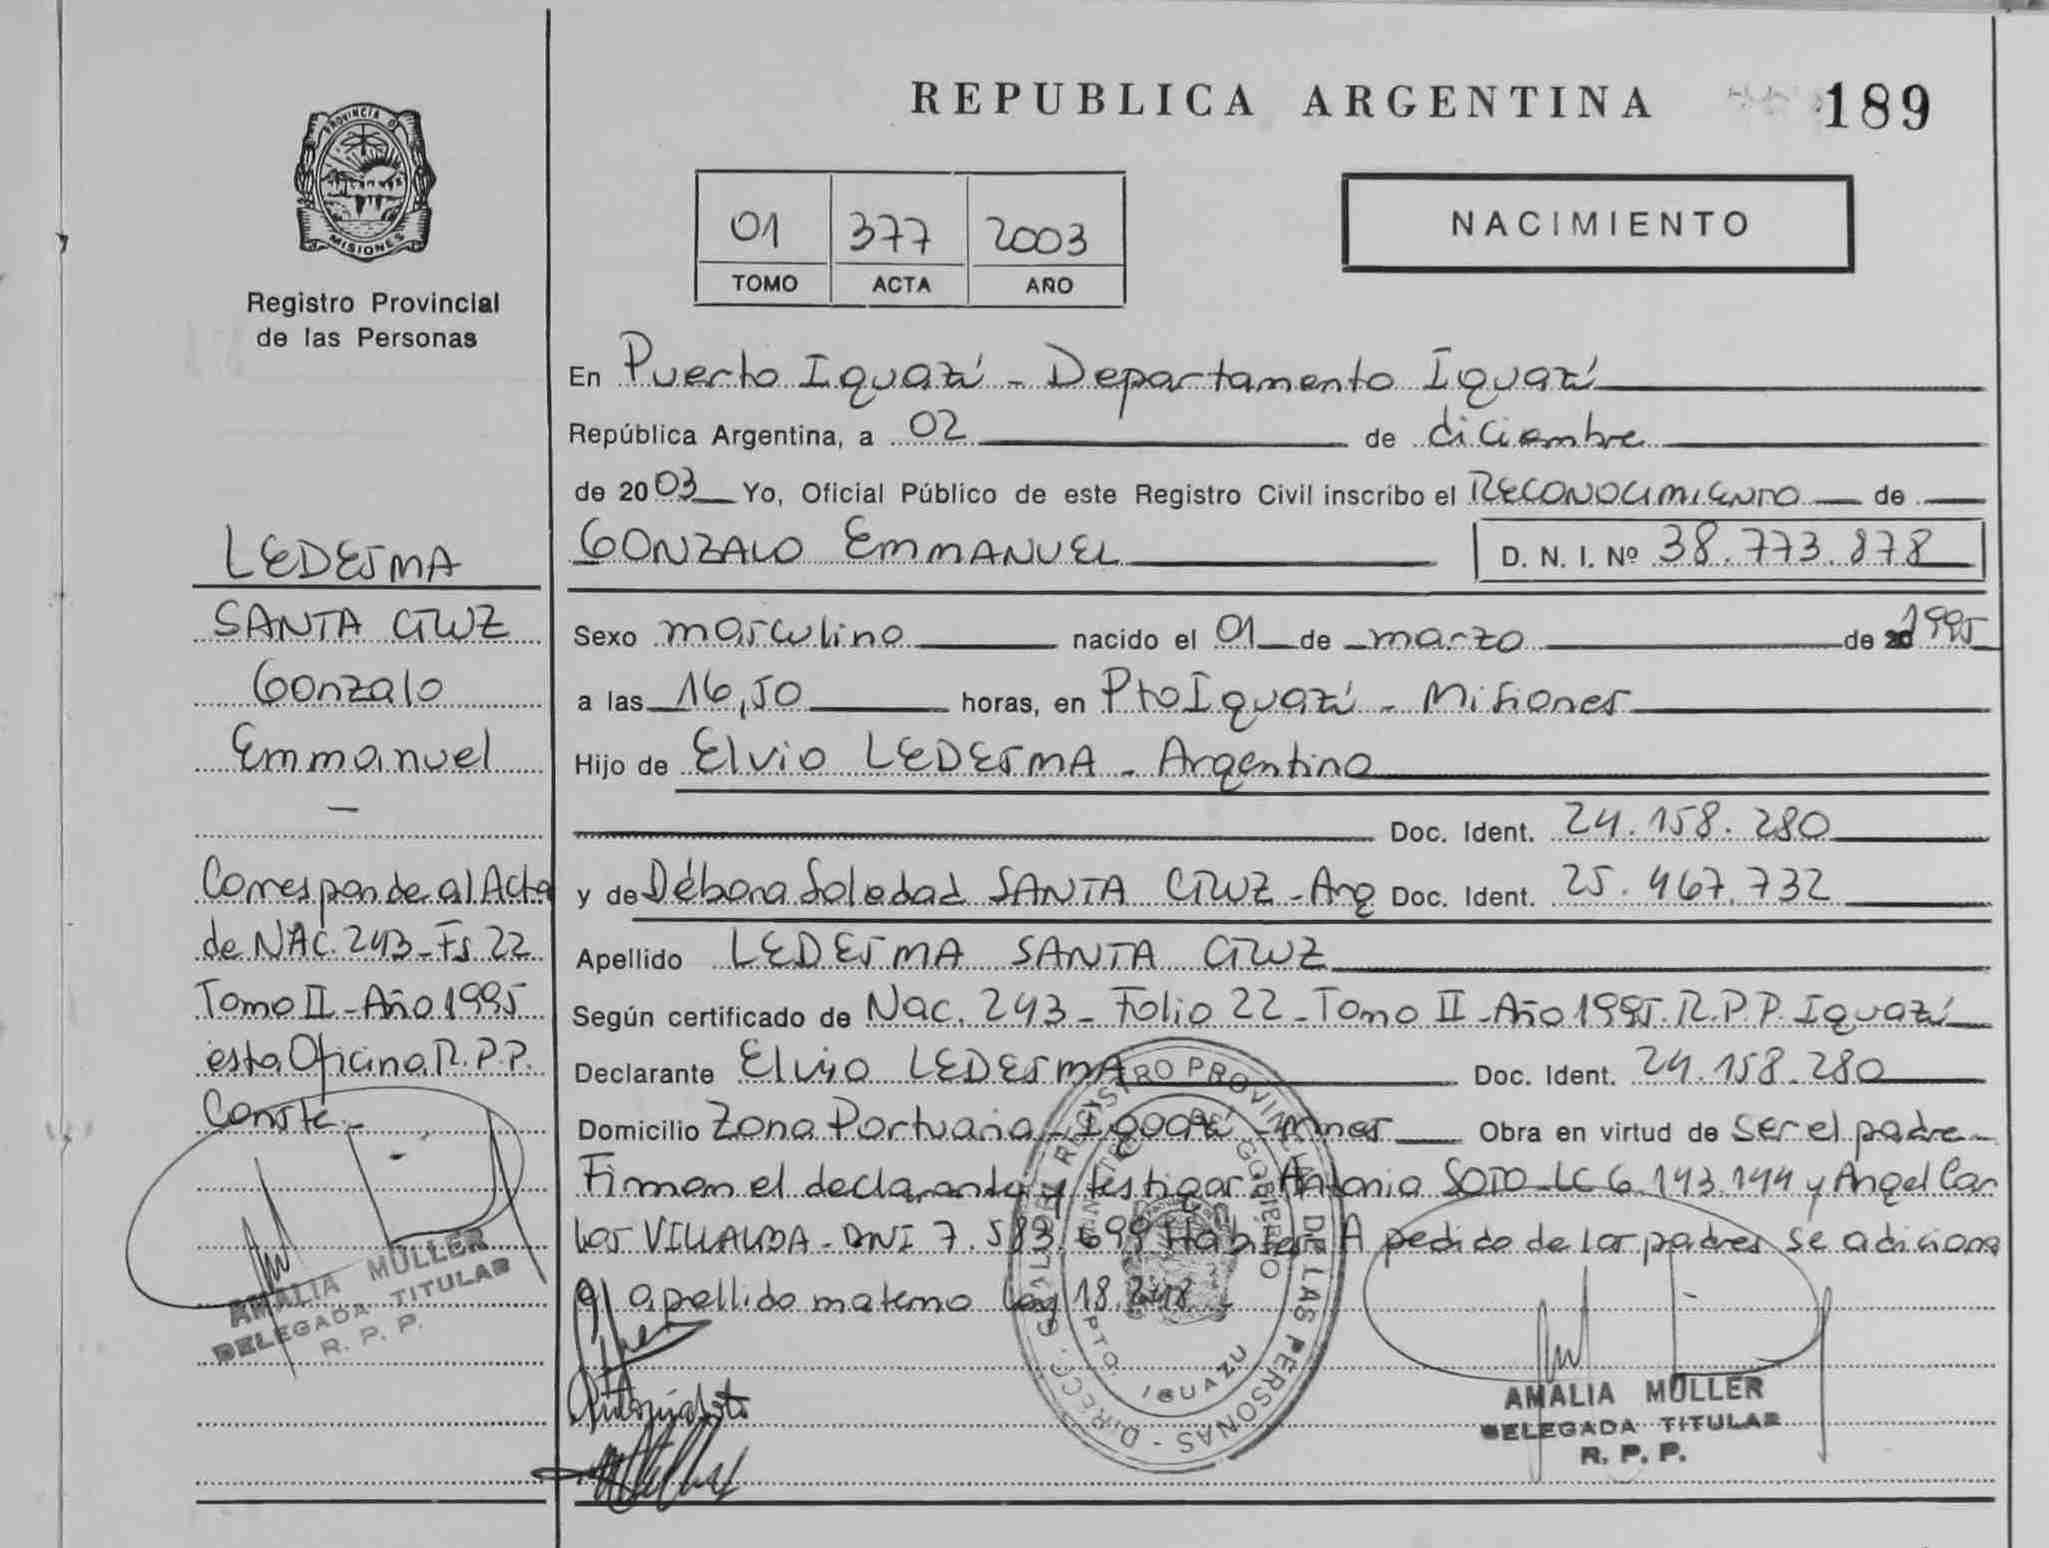 REPUBLICA ARGENTINA
189
PROVINCIA DE
MISIONES
Registro Provincial
de las Personas
01 377 2003
TOMO ACTA AÑO
NACIMIENTO
En Puerto Iguazú - Departamento Iguazú
República Argentina, a 02 de diciembre
de 2003 Yo, Oficial Público de este Registro Civil inscribo el RECONOCIMIENTO de
GONZALO EMMANUEL D. N. I. Nº 38.773.878
Sexo masculino nacido el 01 de marzo de 1995
a las 16,50 horas, en Pto Iguazú - Misiones
Hijo de Elvio LEDESMA - Argentino
Doc. Ident. 24.158.280
y de Débora Soledad SANTA CRUZ - Arg Doc. Ident. 25.467.732
Apellido LEDESMA SANTA CRUZ
Según certificado de Nac. 243 - Folio 22 - Tomo II - Año 1995. R.P.P. Iguazú
Declarante Elvio LEDESMA Doc. Ident. 24.158.280
Domicilio Zona Portuaria - Iguazú - Mnes Obra en virtud de ser el padre -
Firman el declarante y testigos: Antonia SOTO - LC 6.143.144 y Angel Car
los VILLALBA - DNI 7.583.699 Hábiles. A pedido de los padres se adiciona
el apellido materno Ley 18.248 -
LEDESMA
SANTA CRUZ
Gonzalo
Emmanuel
-
Corresponde al Acta
de NAC. 243 - Fs 22
Tomo II - Año 1995
esta Oficina R.P.P.
Conste -
AMALIA MULLER
DELEGADA TITULAR
R. P. P.
REGISTRO PROVINCIAL DE LAS PERSONAS
IGUAZU
AMALIA MULLER
DELEGADA TITULAR
R. P. P.